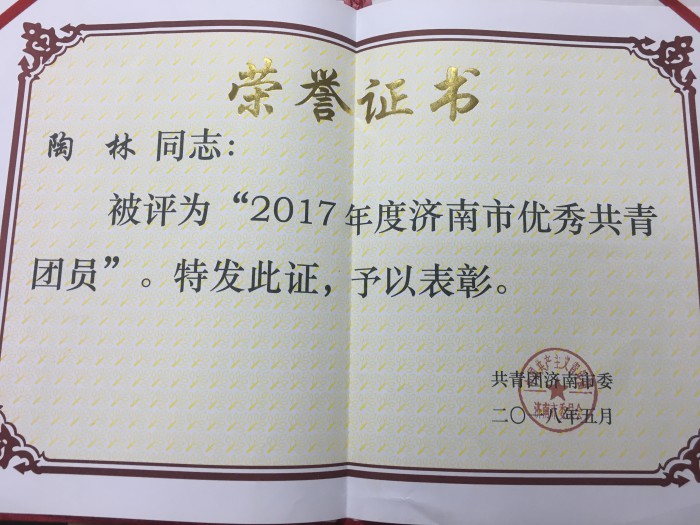 荣誉证书
陶 林 同志：
被评为“2017年度济南市优秀共青
团员”。特发此证，予以表彰。
共青团济南市委
二〇一八年五月